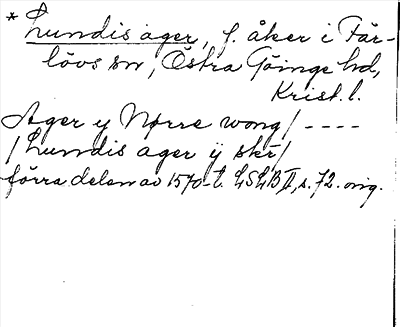 * Lundis ager, f. åker i Fär-
lövs sn, Östra Göinge hd,
Krist. l.
Ager y Nørre wong / ----
/ Lundis ager ÿ skr /
förra delen av 1570-t. LSLB II, s. 72. orig.